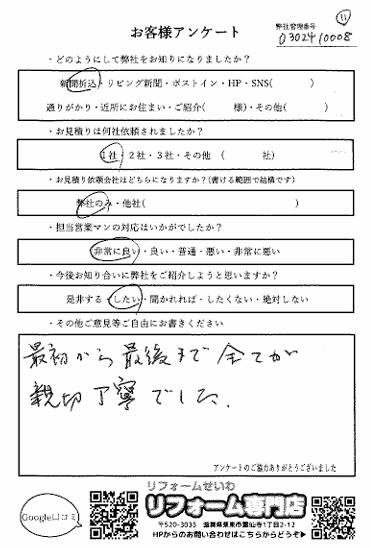 ⑪
お客様アンケート
弊社管理番号
0302410008
・どのようにして弊社をお知りになりましたか？
新聞折込・リビング新聞・ポストイン・HP・SNS(　　　)
通りがかり・近所にお住まい・ご紹介(　　　様)・その他(　　　)
・お見積りは何社依頼されましたか？
1社・2社・3社・その他　(　　　社)
・お見積り依頼会社はどちらになりますか？(書ける範囲で結構です)
弊社のみ・他社(　　　)
・担当営業マンの対応はいかがでしたか？
非常に良い・良い・普通・悪い・非常に悪い
・今後お知り合いに弊社をご紹介しようと思いますか？
是非する・したい・聞かれれば・したくない・絶対しない
・その他ご意見等ご自由にお書きください
最初から最後まで全てが
親切丁寧でした。
アンケートのご協力ありがとうございました
Google口コミ
リフォームせいわ
リフォーム専門店
〒520-3035　滋賀県栗東市霊仙寺1丁目2-12
HPからのお問い合わせはこちらからどうぞ▶